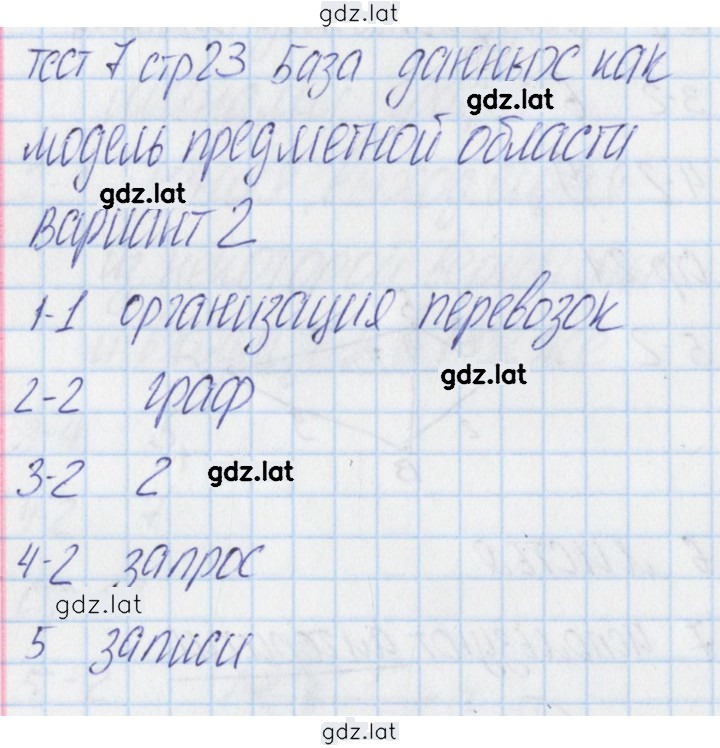 gdz.lat
тест 7 стр 23 База данных как
gdz.lat
модель предметной области
gdz.lat
вариант 2
1-1 организация перевозок
gdz.lat
2-2 граф
3-2 2 gdz.lat
4-2 запрос
gdz.lat
5 записи
gdz.lat